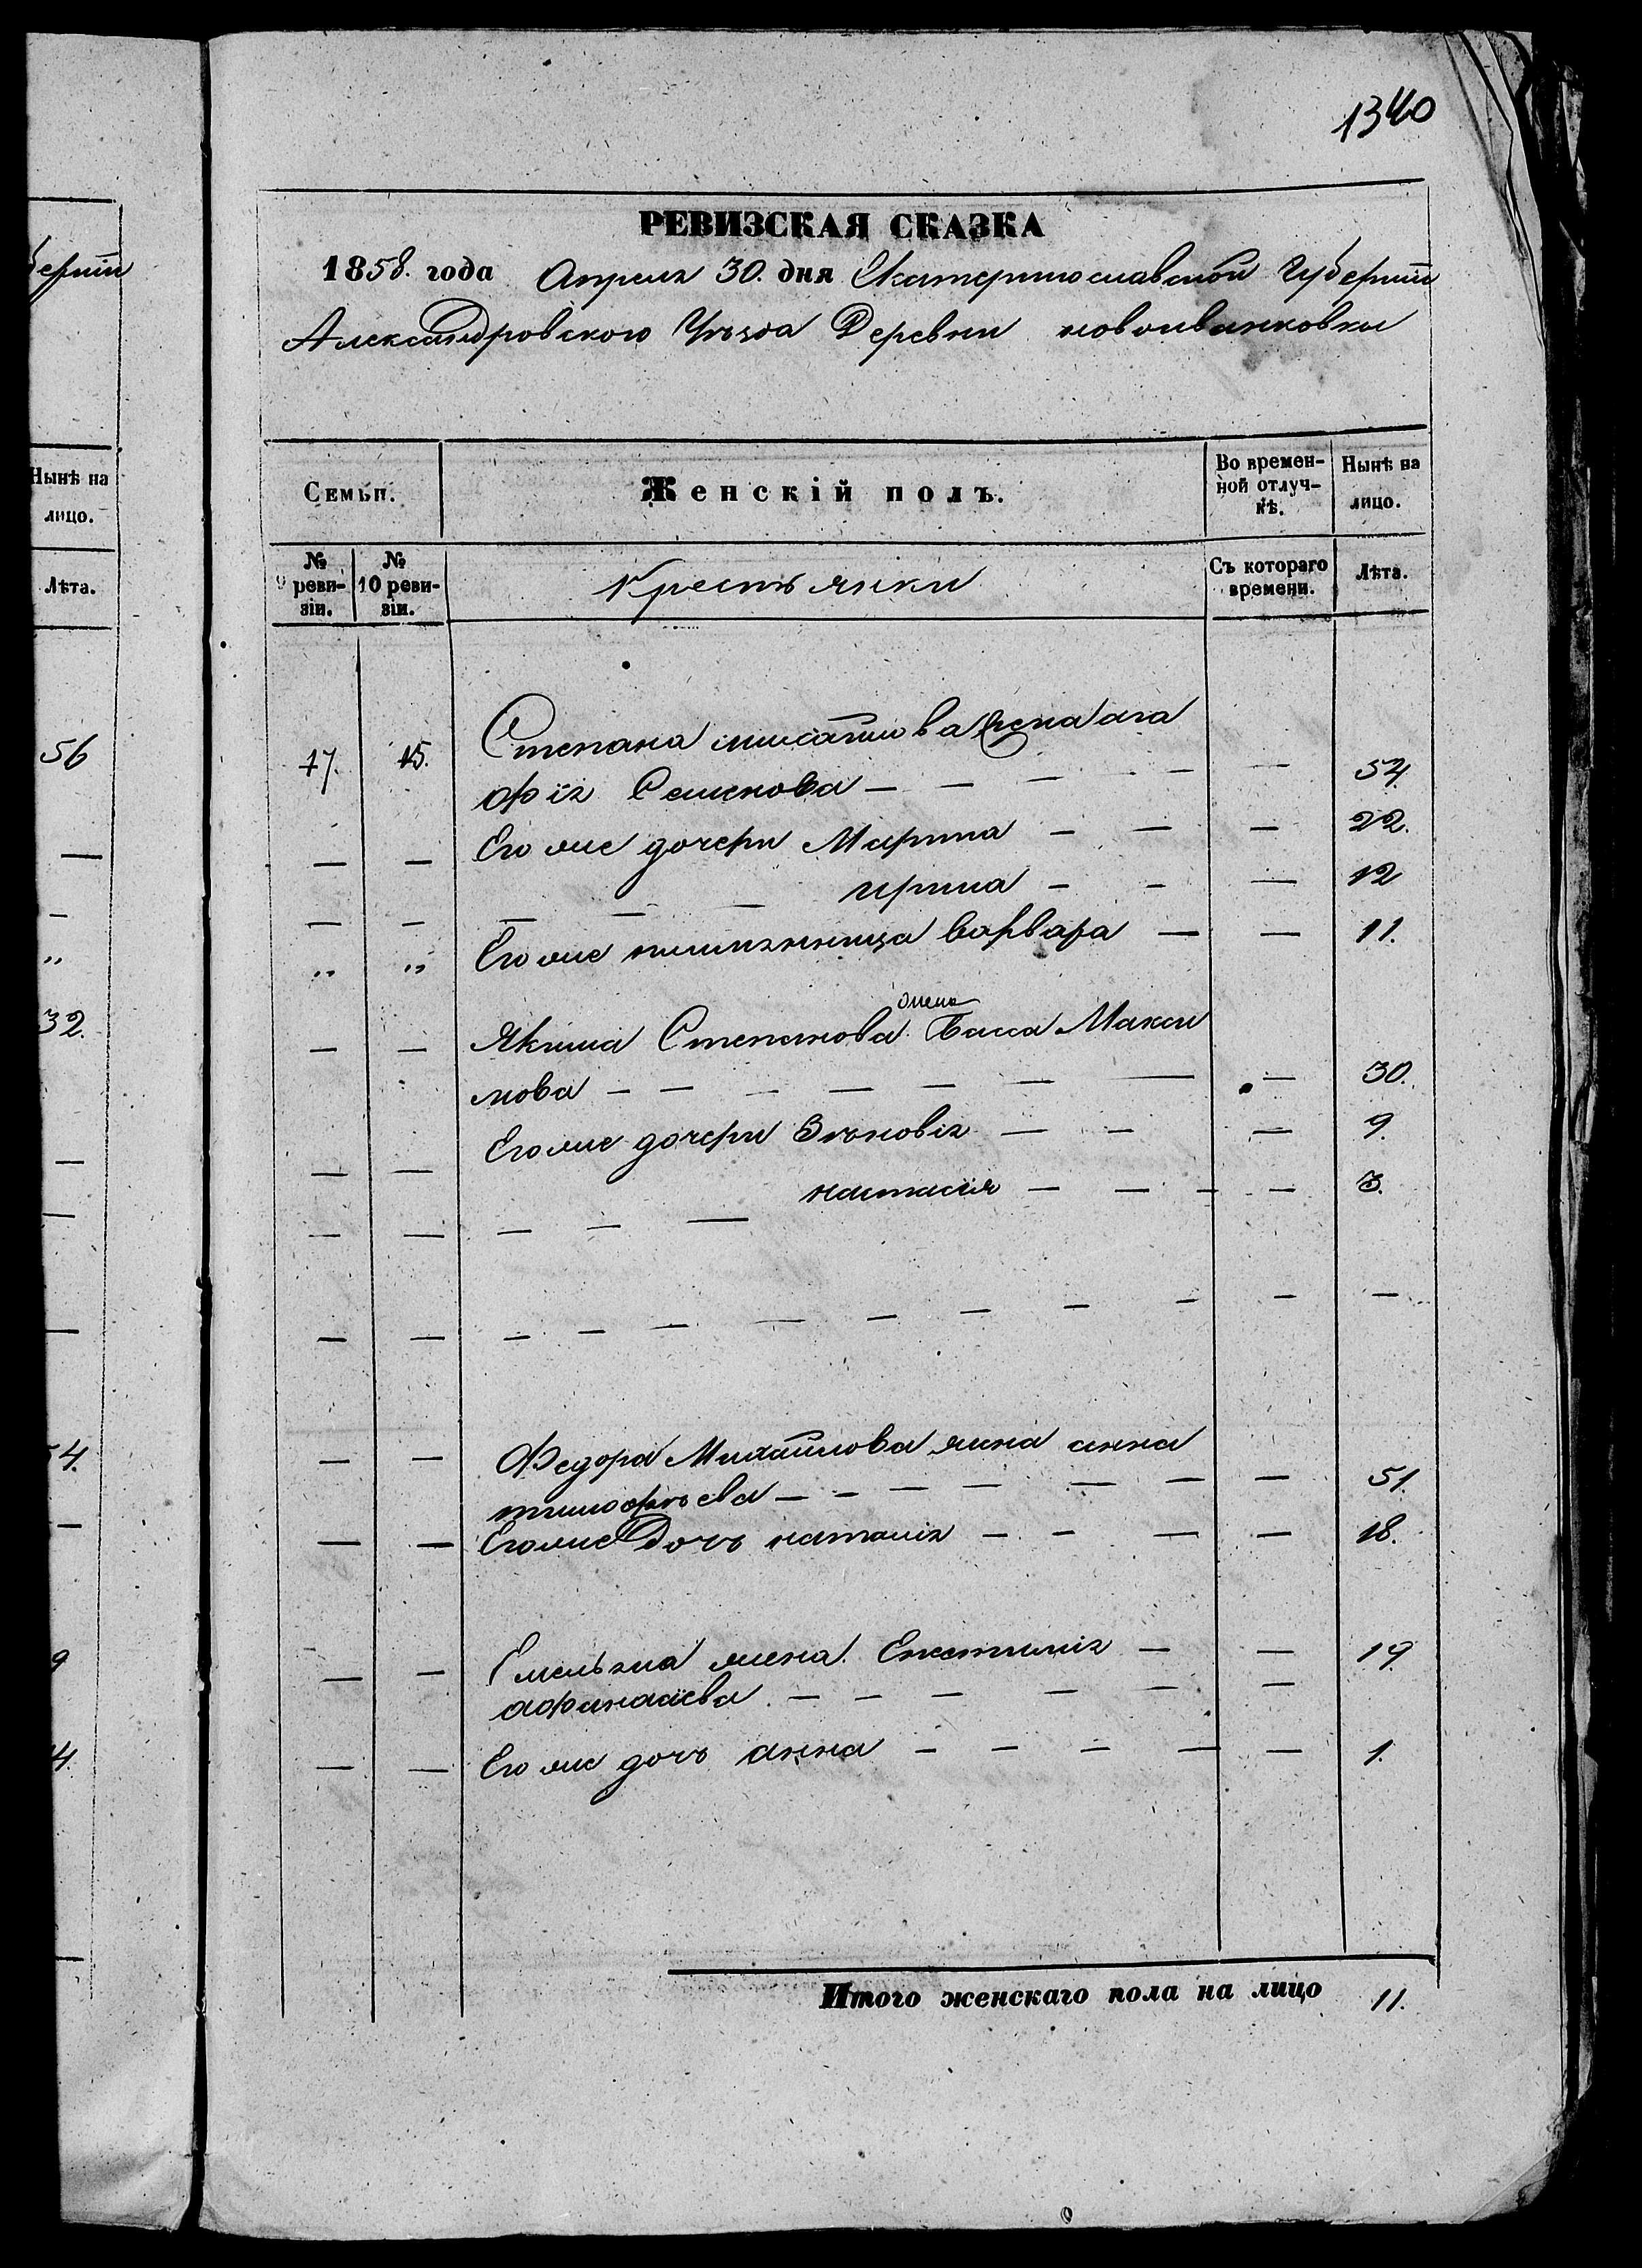 1340
берніи
РЕВИЗСКАЯ СКАЗКА
1858. года Апреля 30. дня Екатеринославской Губерніи
Александровского Уѣзда Деревни новоивановки
Нынѣ на лицо.
Лѣта.
Семьи.
Женскій полъ.
Во времен-
ной отлуч-
кѣ.
Нынѣ на
лицо.
№ 9 реви-
зіи.
№ 10 реви-
зіи.
Крестьянки
Съ котораго
времени.
Лѣта.
17. 15. Степана михайлова жена ага
фія Семенова — — — — — 54.
— — Его же дочери Марина — — — 22.
— — — — — ирина — — — 12
„ „ Его же племянница варвара — — 11.
жена
— — Якима Степанова Васса Макси
мова — — — — — — — — 30.
— — Его же дочери Зѣновія — — — 9.
— — — — — настасія — — — — 3.
— — — — — — — — — — — —
— — Федора Михайлова жена анна
тимофѣева — — — — — — — 51.
— — Его же Дочь наталія — — — — 18.
— — Емельяна жена Евстилія — — 19.
афанасіева — — — — — —
— — Его же дочь анна — — — — — 1.
Итого женскаго пола на лицо 11.
56
32.
54.
9
4.